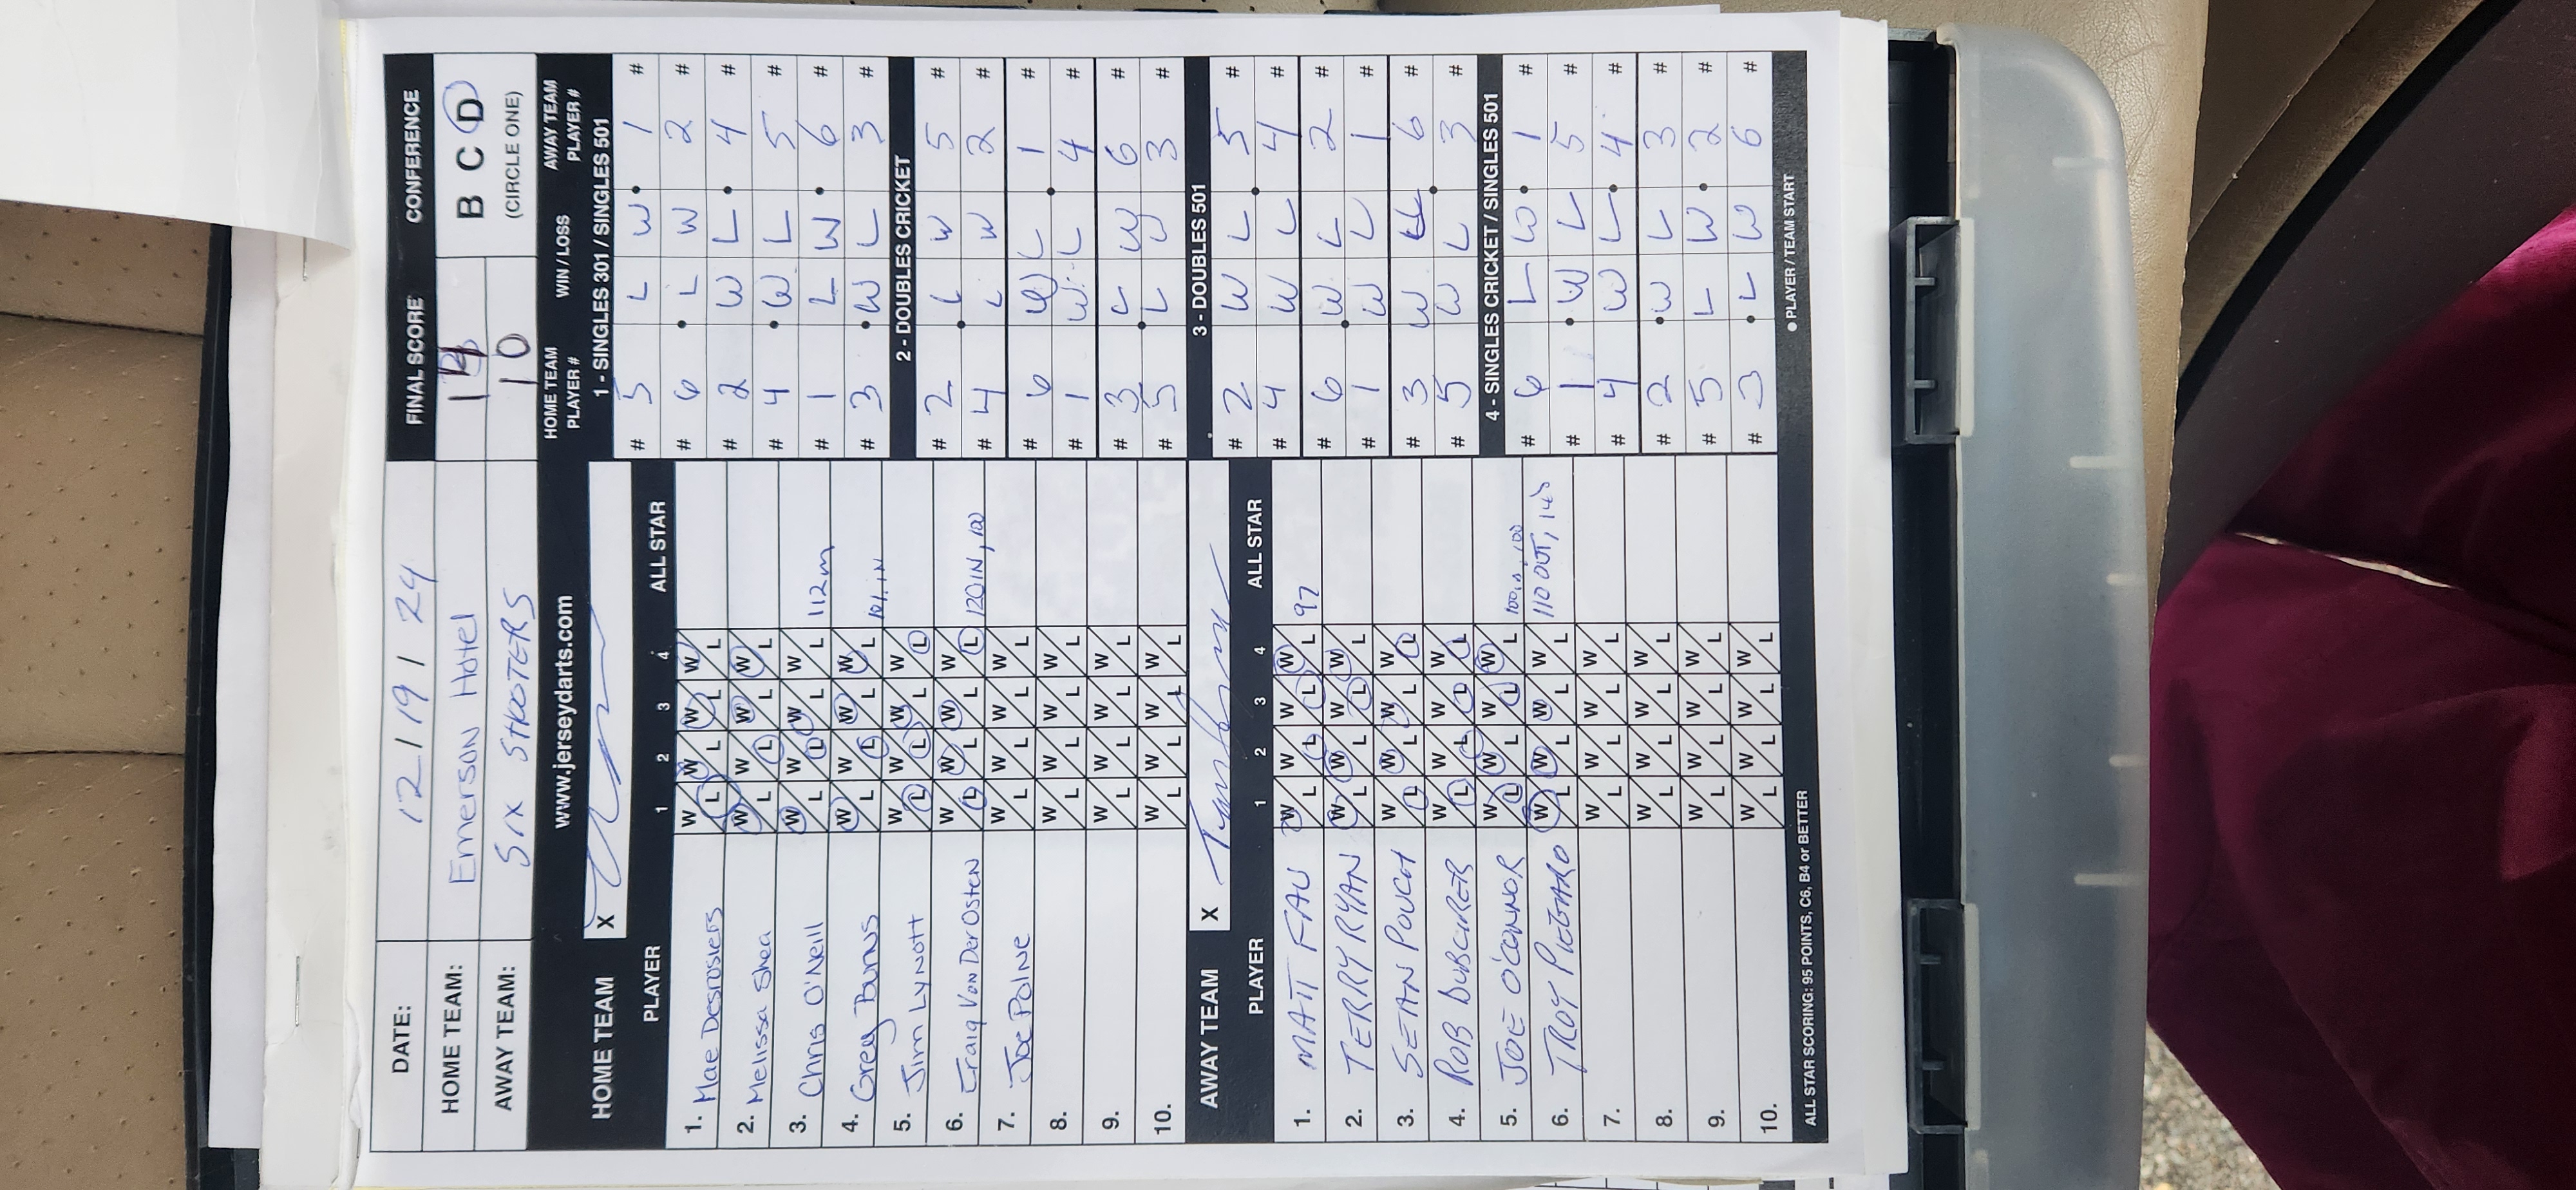 DATE: 12 / 19 / 24 FINAL SCORE CONFERENCE
HOME TEAM: Emerson Hotel 14 B C D
AWAY TEAM: SIX SHOOTERS 10 (CIRCLE ONE)
www.jerseydarts.com
HOME TEAM X
PLAYER 1 2 3 4 ALL STAR
1. Mae Desrosiers W L W L W L W L
2. Melissa Shea W L W L W L W L
3. Chris O'Neill W L W L W L W L 112in
4. Greg Burns W L W L W L W L 101 IN
5. Jim Lynott W L W L W L W L
6. Craig Von Der Osten W L W L W L W L 120IN, 100
7. Joe Polne W L W L W L W L
8. W L W L W L W L
9. W L W L W L W L
10. W L W L W L W L
AWAY TEAM X
PLAYER 1 2 3 4 ALL STAR
1. MATT FAU W L W L W L W L 97
2. TERRY RYAN W L W L W L W L
3. SEAN POUCH W L W L W L W L
4. ROB W L W L W L W L
5. JOE O'CONNOR W L W L W L W L 100
6. TROY W L W L W L W L 110 OUT,
7. W L W L W L W L
8. W L W L W L W L
9. W L W L W L W L
10. W L W L W L W L
ALL STAR SCORING: 95 POINTS, C6, B4 or BETTER
HOME TEAM PLAYER # WIN / LOSS AWAY TEAM PLAYER #
1 - SINGLES 301 / SINGLES 501
# 5 L W 1 #
# 6 L W 2 #
# 2 W L 4 #
# 4 W L 5 #
# 1 L W 6 #
# 3 W L 3 #
2 - DOUBLES CRICKET
# 2 L W 5 #
# 4 L W 2 #
# 6 W L 1 #
# 1 W L 4 #
# 3 L W 6 #
# 5 L W 3 #
3 - DOUBLES 501
# 2 W L 5 #
# 4 W L 4 #
# 6 W L 2 #
# 1 W L 1 #
# 3 W L 6 #
# 5 W L 3 #
4 - SINGLES CRICKET / SINGLES 501
# 6 L W 1 #
# 1 W L 5 #
# 4 W L 4 #
# 2 W L 3 #
# 5 L W 2 #
# 3 L W 6 #
● PLAYER / TEAM START